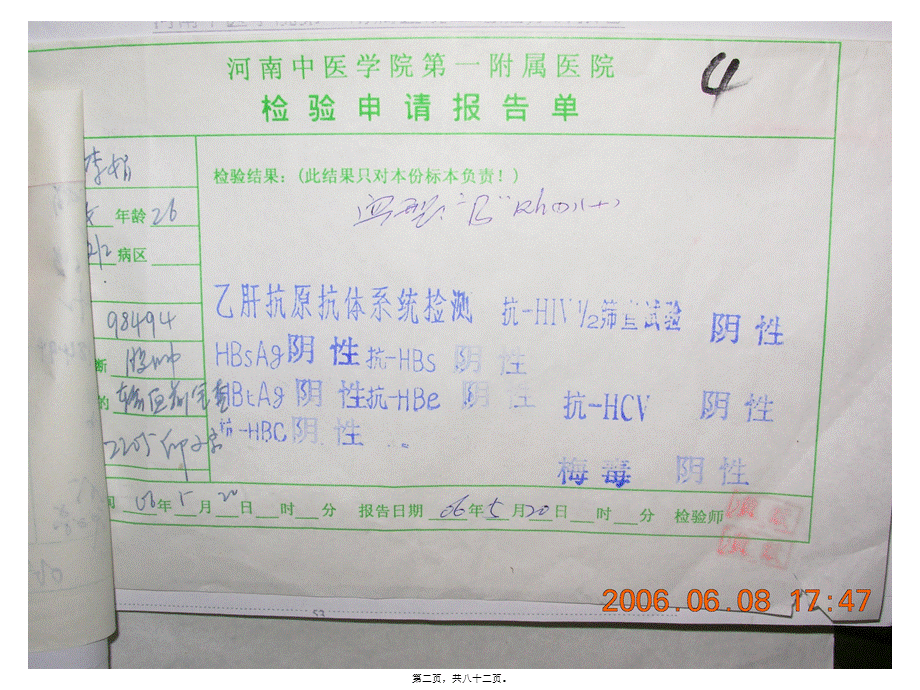 河南中医学院第一附属医院
检验申请报告单
4
李娟
检验结果：(此结果只对本份标本负责！)
年龄 26
血型："B" Rh(D)(+)
2/2 病区
乙肝抗原抗体系统检测 抗-HIV 1/2筛查试验 阴性
98494
HBsAg 阴性 抗-HBs 阴性
断
HBtAg 阴性 抗-HBe 阴性 抗-HCV 阴性
的 输血前
抗-HBC 阴性
梅毒 阴性
间 06年5月20日 时 分 报告日期 06年5月20日 时 分 检验师
53
2006.06.08 17:47
第二页，共八十二页。